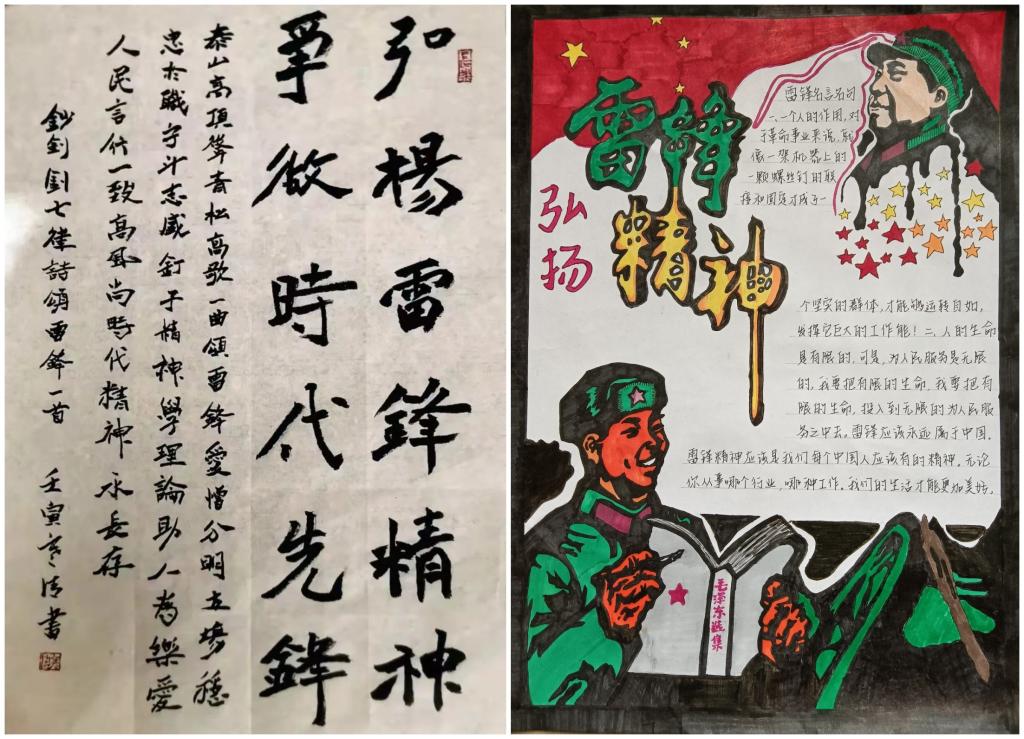 弘楊雷鋒精神
爭做時代先鋒
泰山高頂聳青松高歌一曲頌雷鋒愛憎分明立場穩
忠於職守斗志盛釘子精神學理論助人為樂愛
人民言行一致高風尚時代精神永長存
鈔劉劍七律詩頌雷鋒一首
壬寅
清書
雷锋
精神
弘扬
雷锋名言名句
一、一个人的作用,对
于革命事业来说,就
像一架机器上的
一颗螺丝钉的联
接和固
个坚实的群体,才能够运转自如,
发挥它巨大的工作能!二、人的生命
是有限的,可是,为人民服务是无限
的,我要把有限的生命,我要把有
限的生命,投入到无限的为人民服
务之中去。雷锋应该永远属于中国。
雷锋精神应该是我们每个中国人应该有的精神。无论
你从事哪个行业,哪种工作。我们的生活才能更加美好。
毛泽东选集